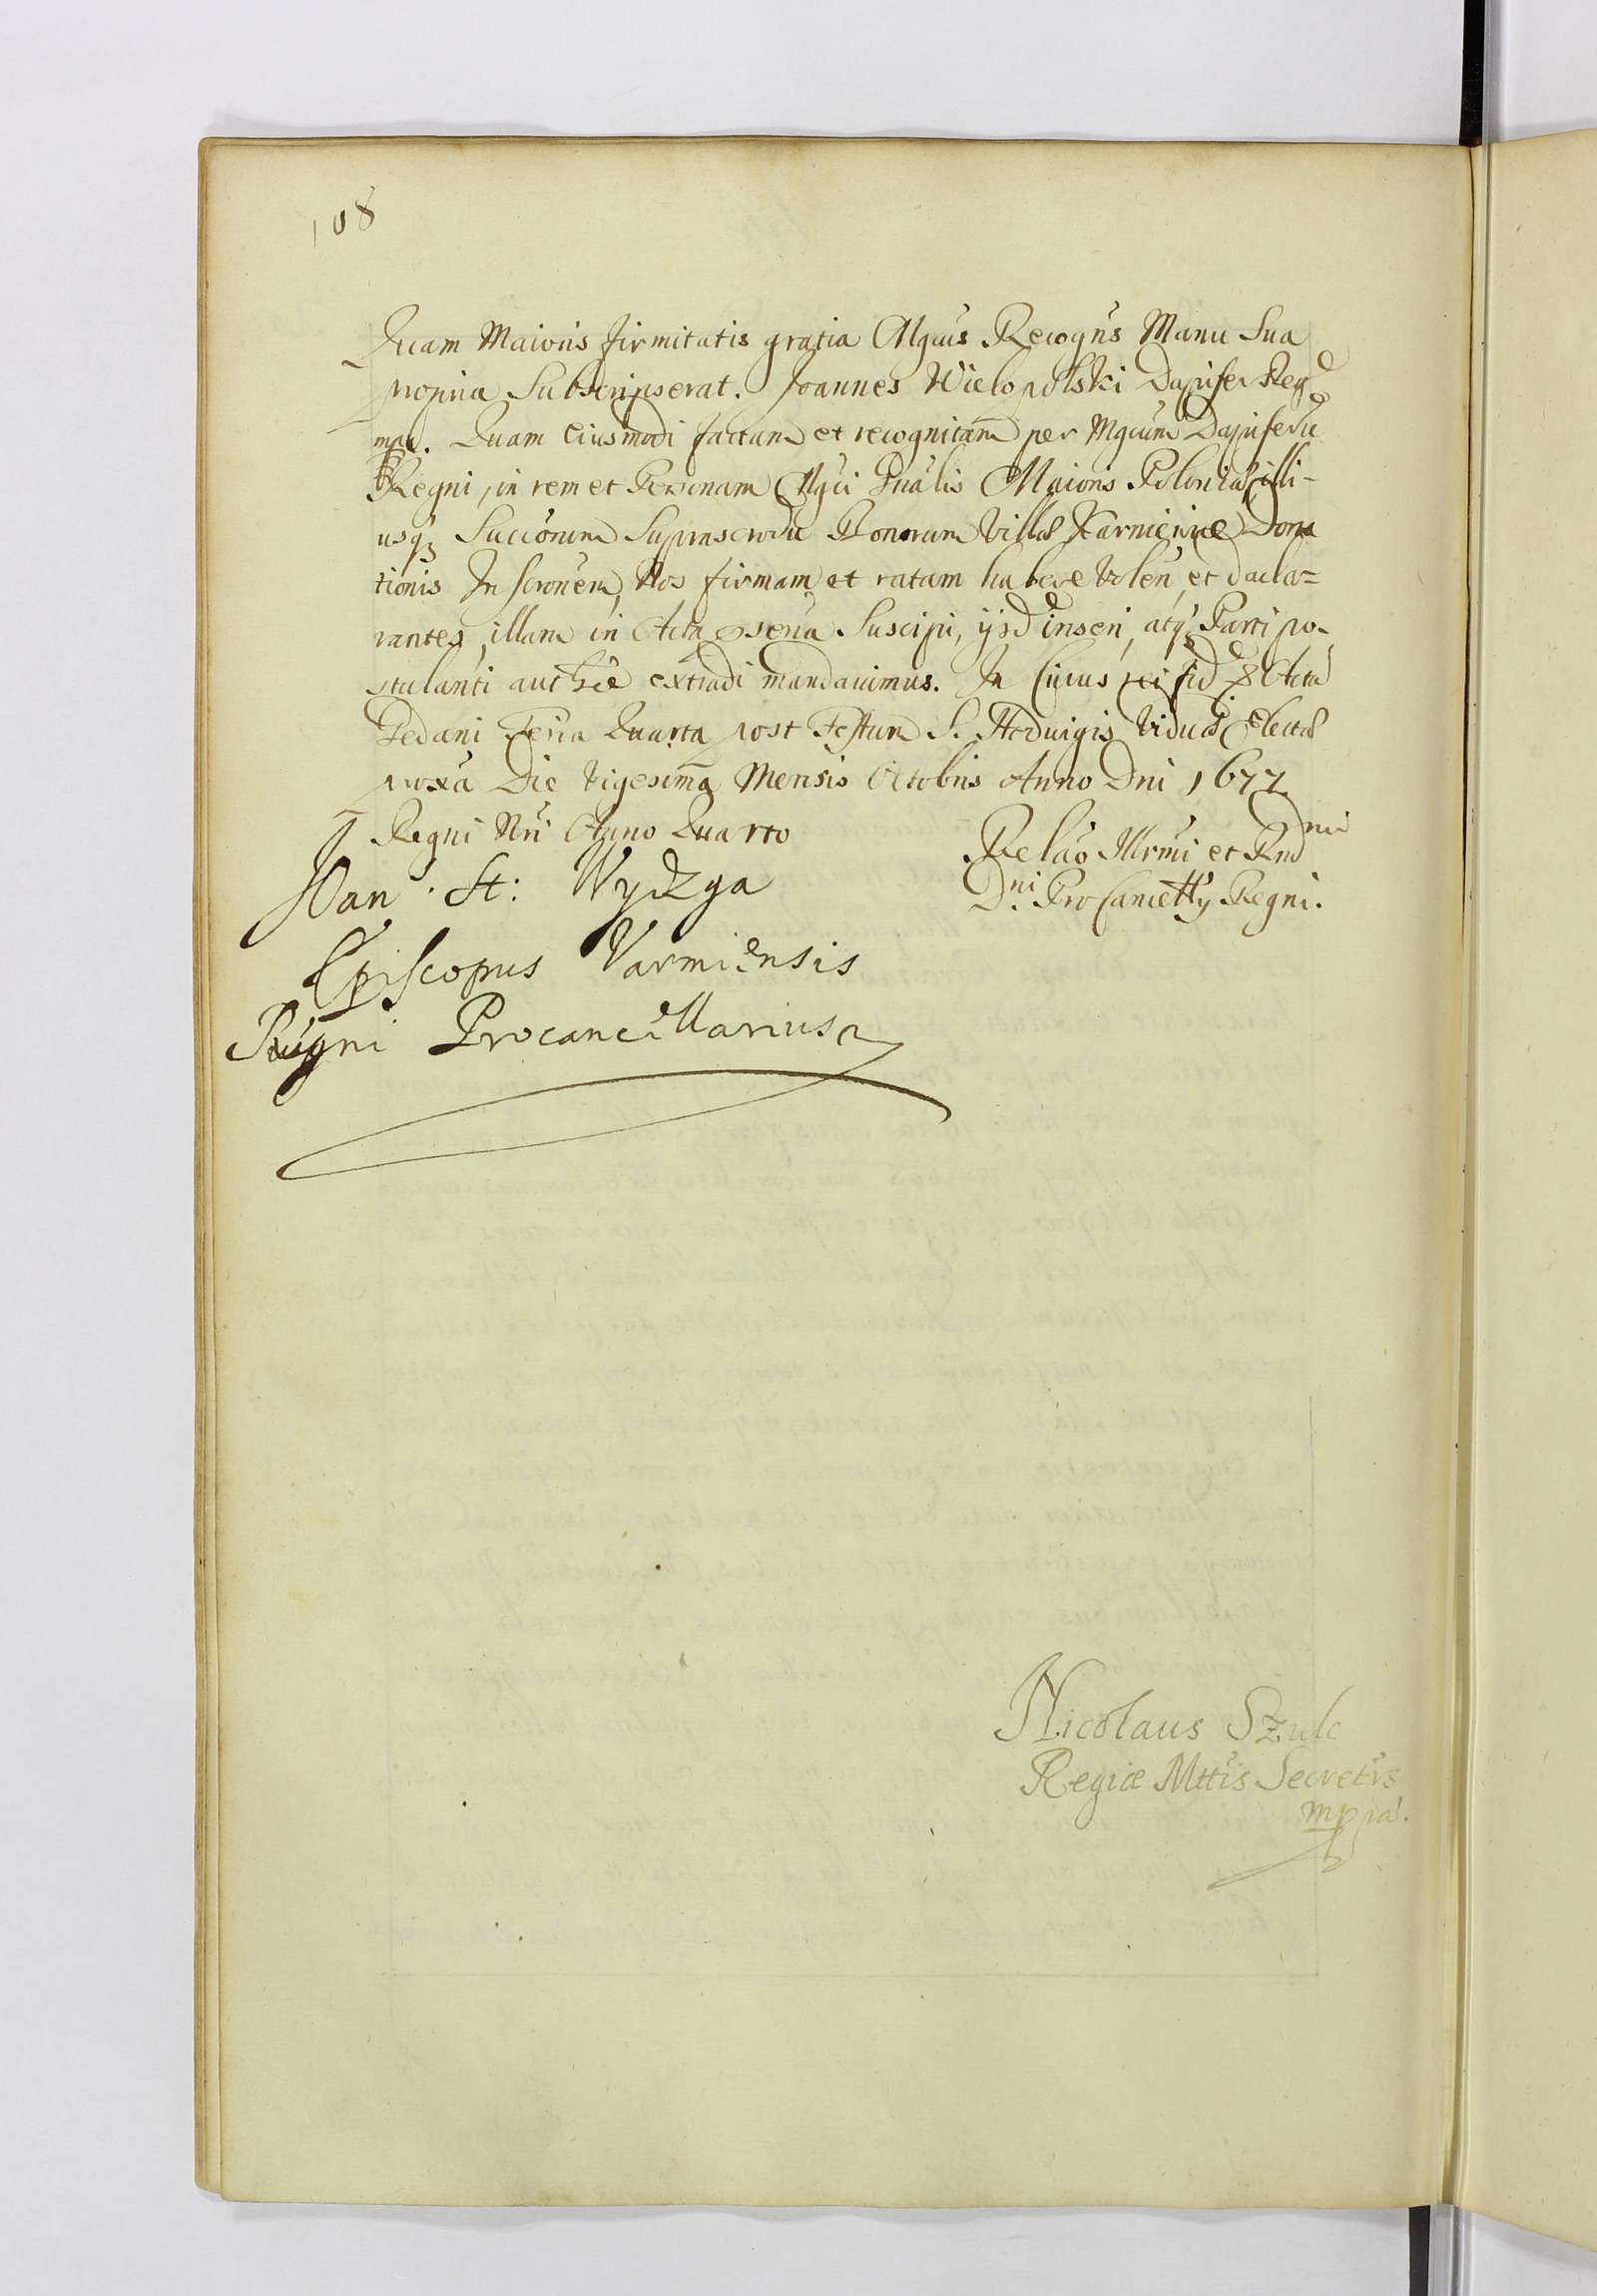 108
Quam Maioris firmitatis gratia Mgcus Recogn̄s Manu Sua
propria Subscripserat. Joannes Wielopolski Dapifer Regᵈ
mpa. Quam Eiusmodi factam et recognitam per Mgcum Dapiferū
Regni, in rem et Personam Mgci Gnalis Maioris Poloniæ illi-
usq3 Succorum Suprascrorū Bonorum Villæ Karmienice Dona
tionis Inscronem, Nos firmam et ratam habere Volen̄, et decla=
rantes, illam in Acta præsentia Suscipi, ijsd̄ inseri, atq3 Parti po-
stulanti authce extradi mandavimus. In Cuius rei fid
Gedani Feria Quarta post Festum S. Hedvigis Viduæ Electæ
proxa Die Vigesima Mensis Octobris Anno Dni 1677
Regni Nri Anno Quarto
Relao Illrmi et Rndᵐⁱ
Dni. ProCancetty Regni.
Jan St: Wydzga
Episcopus Varmiensis
Regni Procancellarius
Nicolaus Szulc
Regiæ Mttis Secretrs
mppia.